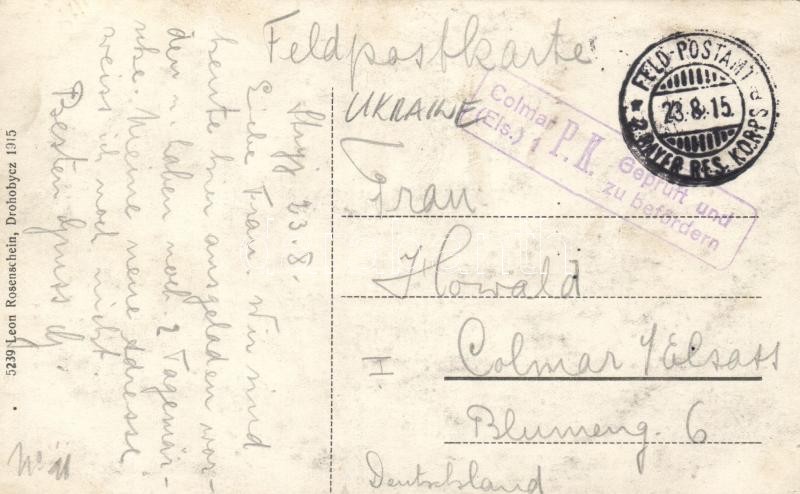 Feldpostkarte
UKRAINE
FELD-POSTAMT
23.8.15.
* 2. BAYER. RES. KORPS
Colmar
(Els.) 1
P.K.
Geprüft und
zu befördern
Stryj 23.8.
Liebe Frau. Wir sind
heute hier ausgeladen wor-
den u. haben noch 2 Tagemär-
sche. Meine neue Adresse
weiss ich noch nicht.
Besten Gruss
Frau
Howald
I.
Colmar i/Elsass
Blumeng. 6
Deutschland
No 11
5239 Leon Rosenschein, Drohobycz 1915